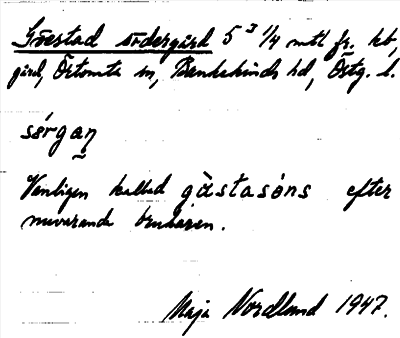 Gåestad södergård 5 3 1/4 mtl fr. kb,
gård, Örtomta sn, Bankekinds hd, Östg. l.
sørgaɲ
Vanligen kallad gåstasôns efter
nuvarande brukaren.
Maja Nordlund 1947.